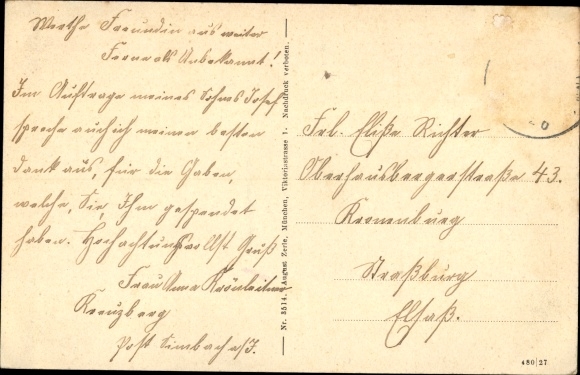 Werthe Freundin aus weiter
Ferne als Unbekannt!
Im Auftrage meines Sohnes Josef
spreche auch ich meinen besten
Dank aus, für die Gaben,
welche, Sie, Ihm gespendet
haben. Hochachtungsvollst Gruß
Frau Anna
Kreuzberg
Post Simbach a/J.
Nr. 3514. August Zerle, München, Viktoriastrasse 1. Nachdruck verboten.
Frl. Eliße Richter
Oberhausbergerstraße 43.
Kronenburg
Straßburg
Elsaß.
480/27